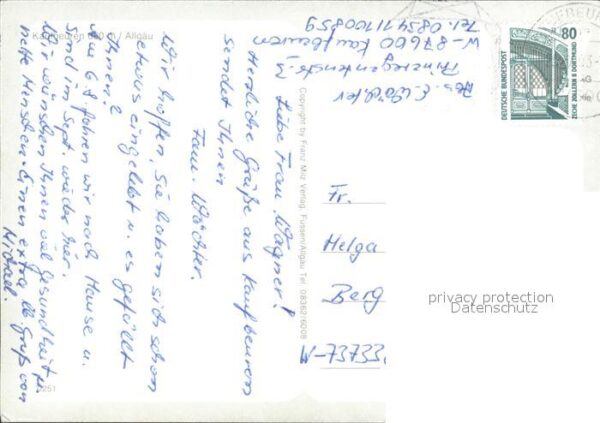 Kaufbeuren 680 m / Allgäu
W-87600 Kaufbeuren
Tel. 08341/100859
Liebe Frau Wagner!
Herzliche Grüße aus Kaufbeuren
sendet Ihnen
Fam. Wächter.
Wir hoffen, Sie haben sich schon
etwas eingelebt u. es gefällt
Ihnen?
Am 6.8. fahren wir nach Hause u.
sind im Sept. wieder hier.
Wir wünschen Ihnen viel Gesundheit u.
nette Menschen. Einen extra lb. Gruß von
Michael.
251
Copyright by Franz Milz Verlag, Füssen/Allgäu Tel. 08362/6008
Fr.
Helga
Berg
W-73733
80
DEUTSCHE BUNDESPOST
ZECHE ZOLLERN II DORTMUND
privacy protection
Datenschutz